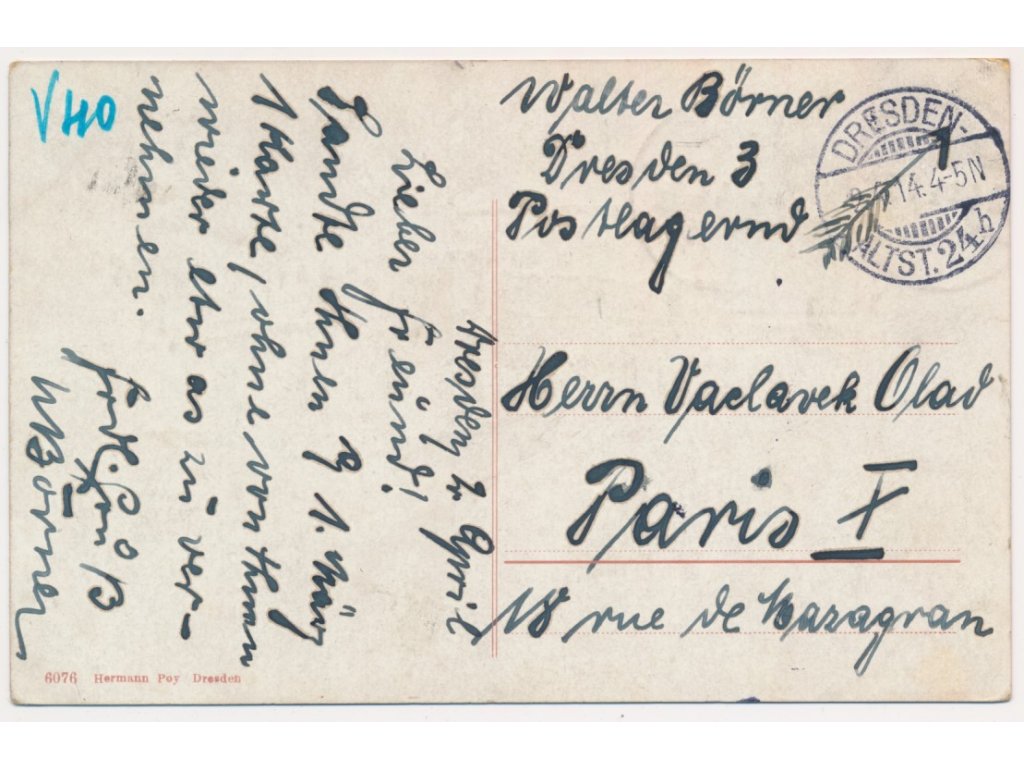 V 40
Walter Börner
Dresden 3
Postlagernd
DRESDEN-
14.4-5N
ALTST. 24h
Herrn Vaclavek Olad
Paris X
18 rue de Mazagran
Dresden 2 April
Lieber Freund!
Sandte Ihnen 1. März
1 Karte, ohne von Ihnen
wieder etwas zu ver-
nehmen.
Frdl. Gruß
W Börner
6076 Hermann Poy Dresden